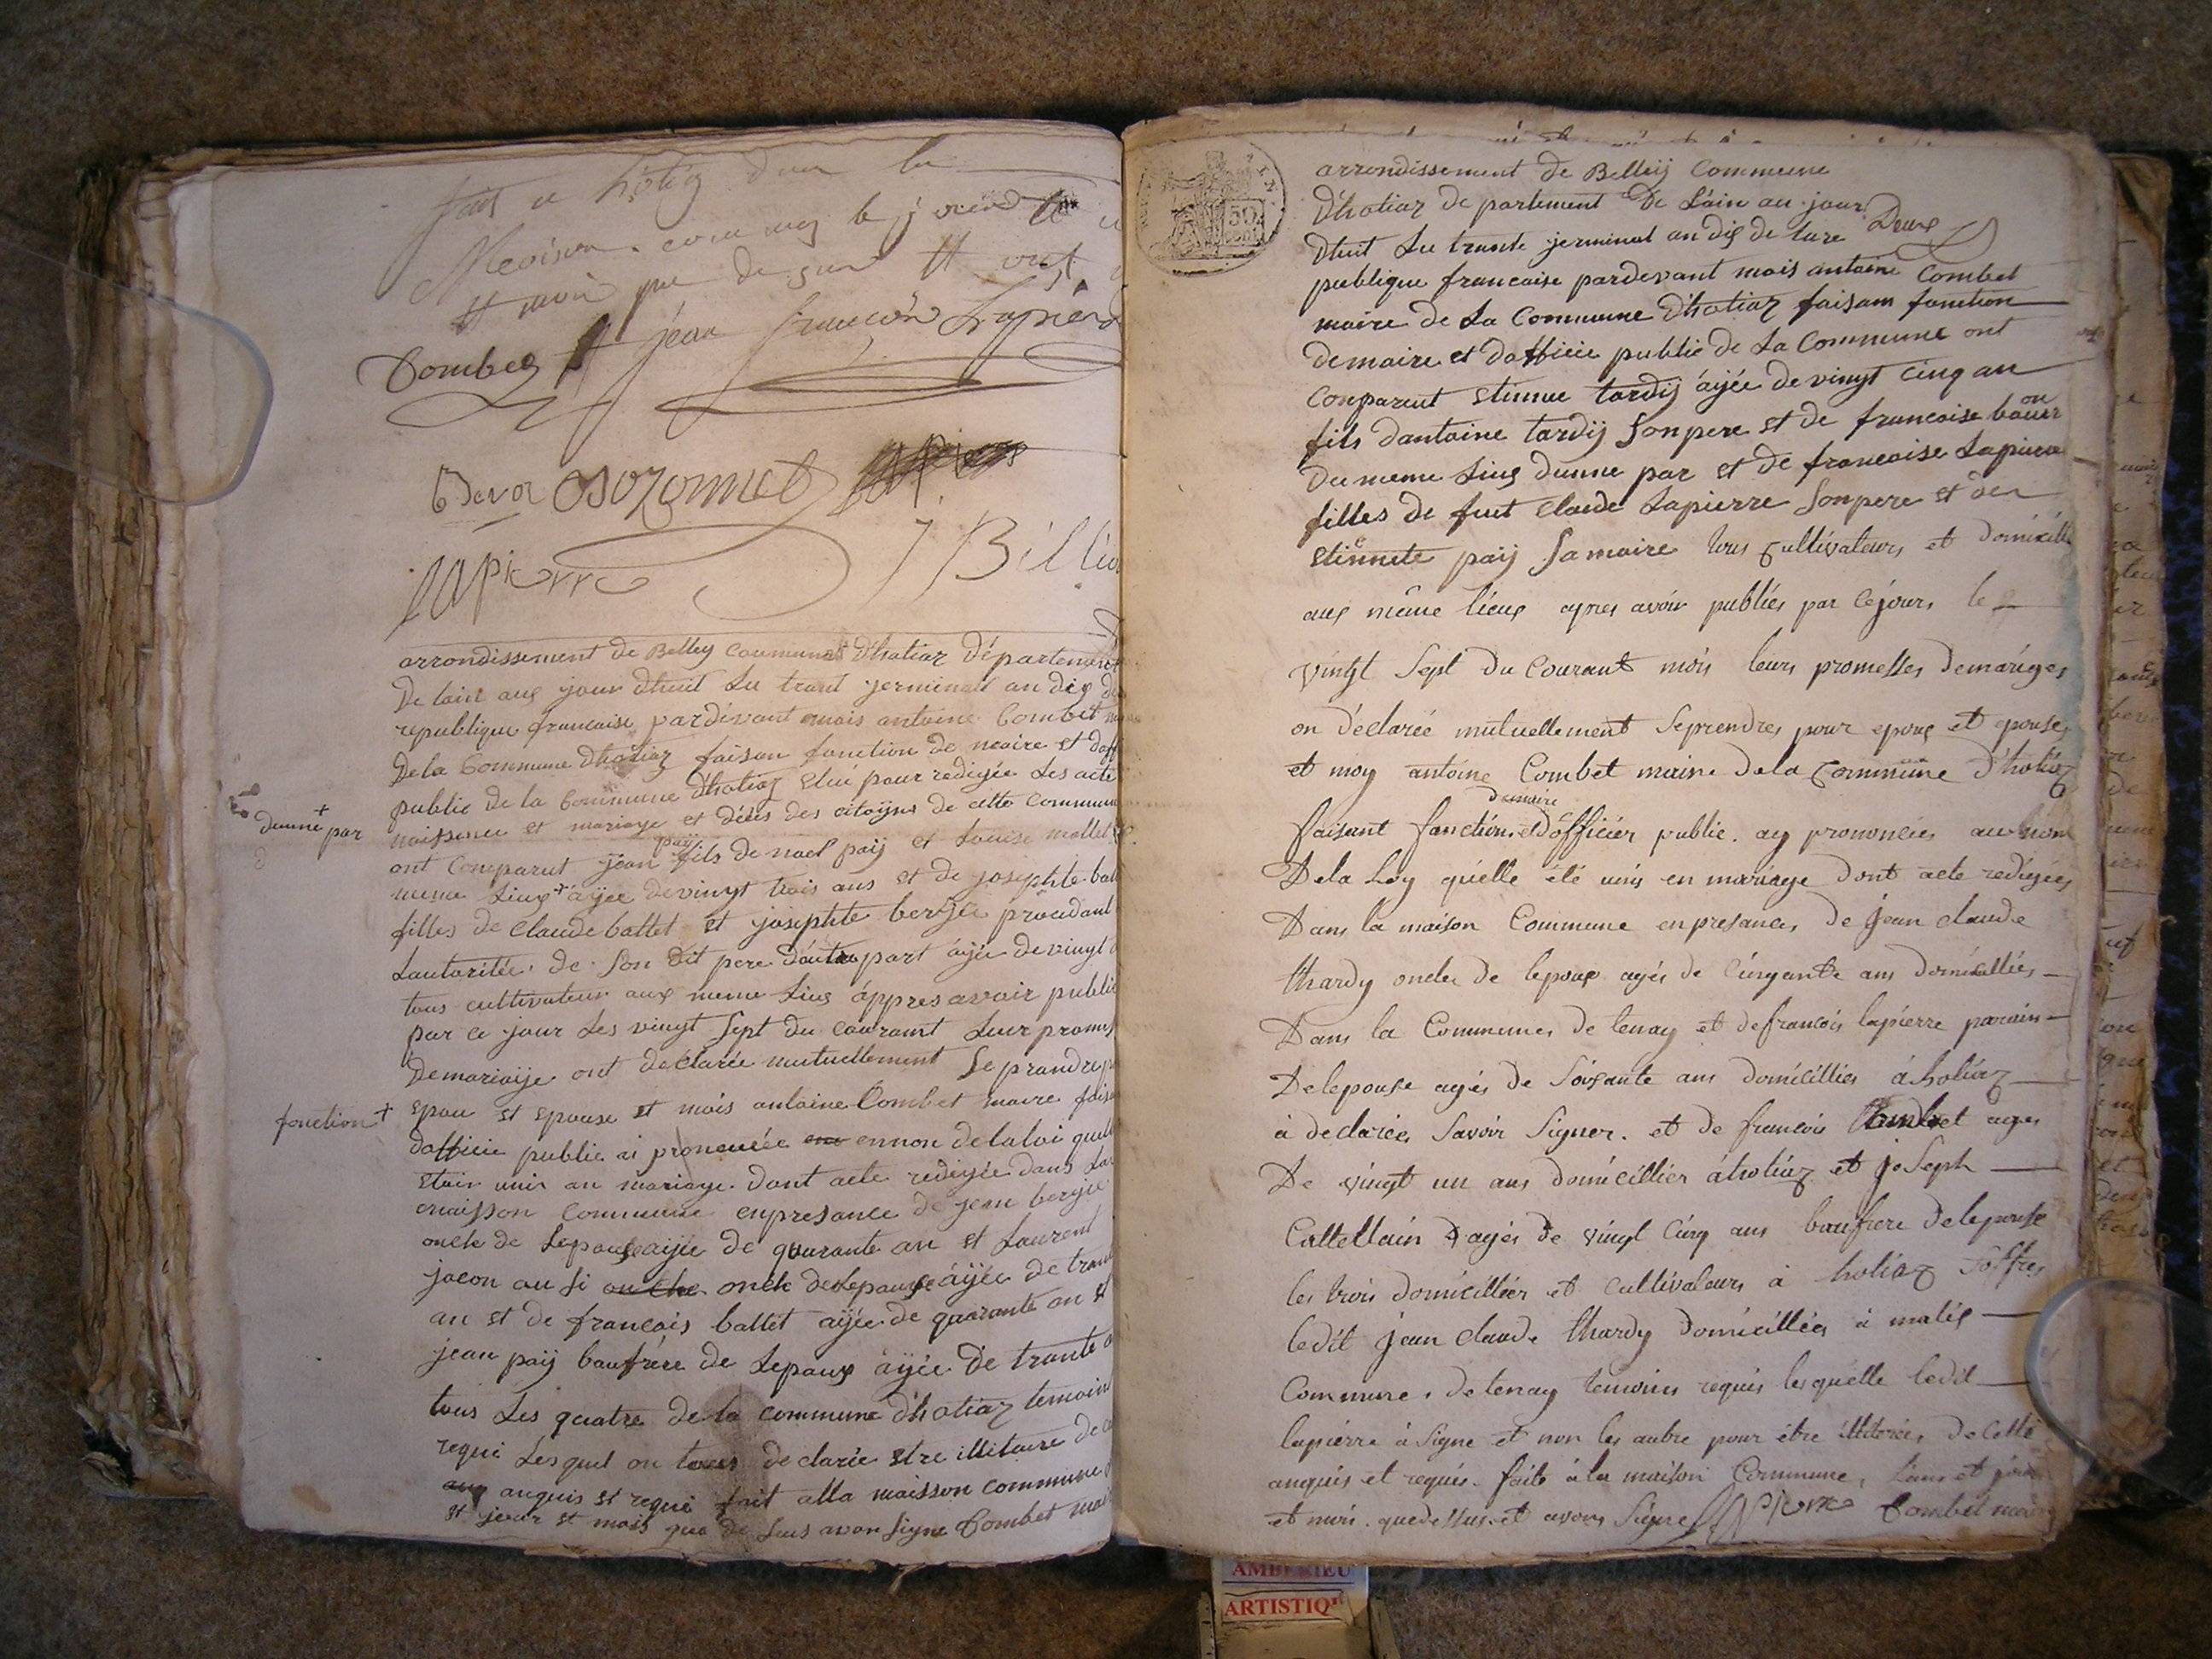 fait a hotiaz dan la
Maison commeg le j
et moi que de sus et ont
Combet jean françois Lapierre
lapierre
J Billi
arrondissement de Belley Commune d'hotiaz département
De lain aux jour dhuit du trant jerminalt an dix de
republique francaise pardevant mois antoine Combet
De la Commune dhotiaz faisan fonction de maire et daff
public de la Commune d'hotiaz Elu pour redigée Les acte
naissence et mariage et déces des citoÿns de cette Commune
dunne + par
ont Comparut jean paÿ fils de noel paÿ et Louise mollet
meme Lieux + âÿée de vingt trois ans et de josephte ball
filles de Claude ballet et josephte berjié procedant
Lautoritée de son dit pere dautre part âÿée de vingt
tous cultivateur aux meme Lieux áppres avoir public
par ce jour Les vingt sept du courant Leur promess
De mariaije ont declarée mutuellement se prandre
fonction +
epou et epouse et mois antoine Combet maire faisa
daffície public ai pronencée ennon de la loi quell
etoir unir an mariage dont acte redigée dans La
maisson Commune enpresance de jean berjié
oncle de Lepouse aÿée de quarante an et Laurent
jacon au si onche oncle de Lepouse âÿée de trant
an et de francois ballet aÿée de quarante an et
jean paÿ baufrére de Lepoux aÿée de trante
tous Les quatre de la commune d'hotiaz temoins
requi Lesquel on tous declarée etre illitaire de ce
anquis et requi fait alla maisson commune
et jour et mois que de sus avon signe Combet mai
arrondissement de Belleÿ Commune
D'hotiaz de partement De Láin au jour
Dhuit Du trante jerminal an dix de lare Deux
publique francaise pardevant mois antoine Combet
maire de La Commune D'hotiaz faisam fonction
de maire et daffície public de La Commune ont
Conparut etienne tardiÿ âÿée de vingt cinq an
fils dantoine tardiÿ son pere et de francoise
du meme Lieux dunne par et de francoise Lapiere
filles de fut Claude Lapierre son pere et de
etiennete paÿ sa maire tous cultivateurs et domicill
aux même lieux apres avoir publiés par ce jours le
vingt Sept du Courant mois leurs promesses de mariges
on déclarée mutuellement se prendres pour epoux et epouse
et moy antoine Combet maire de la Commune d'hotiaz
faisant fonction de maire et d'officier public ay prononcés au nom
De la Loy quélle été unis en mariage Dont acte redigées
Dans la maison Commune enpresances de jean claude
thardy oncle de lepoux agés de cinqante ans domicilliés
Dans la Communes de tenay et de francois lapierre parain
De lepouse agés de soixante ans domicilliés á hotiaz
à declarées Savoir Signer. et de francois Combet ages
De vingt un ans domicillier á hotiaz et joseph
Cattellain D agés de vingt cinq ans baufrere de lepouse
les trois domicillier et cultivateurs à hotiaz
ledit jean claude thardy domicilliés à malix
Commune de tenay temoins requis lesquelle ledit
lapierre à signe et non les autre pour étre illiterées de Celle
anquis et requis. faite à la maison Commune, Lans et jour
et mois que dessus et avons Signe lapierre Combet maire
AMBERIEU
ARTISTIQ